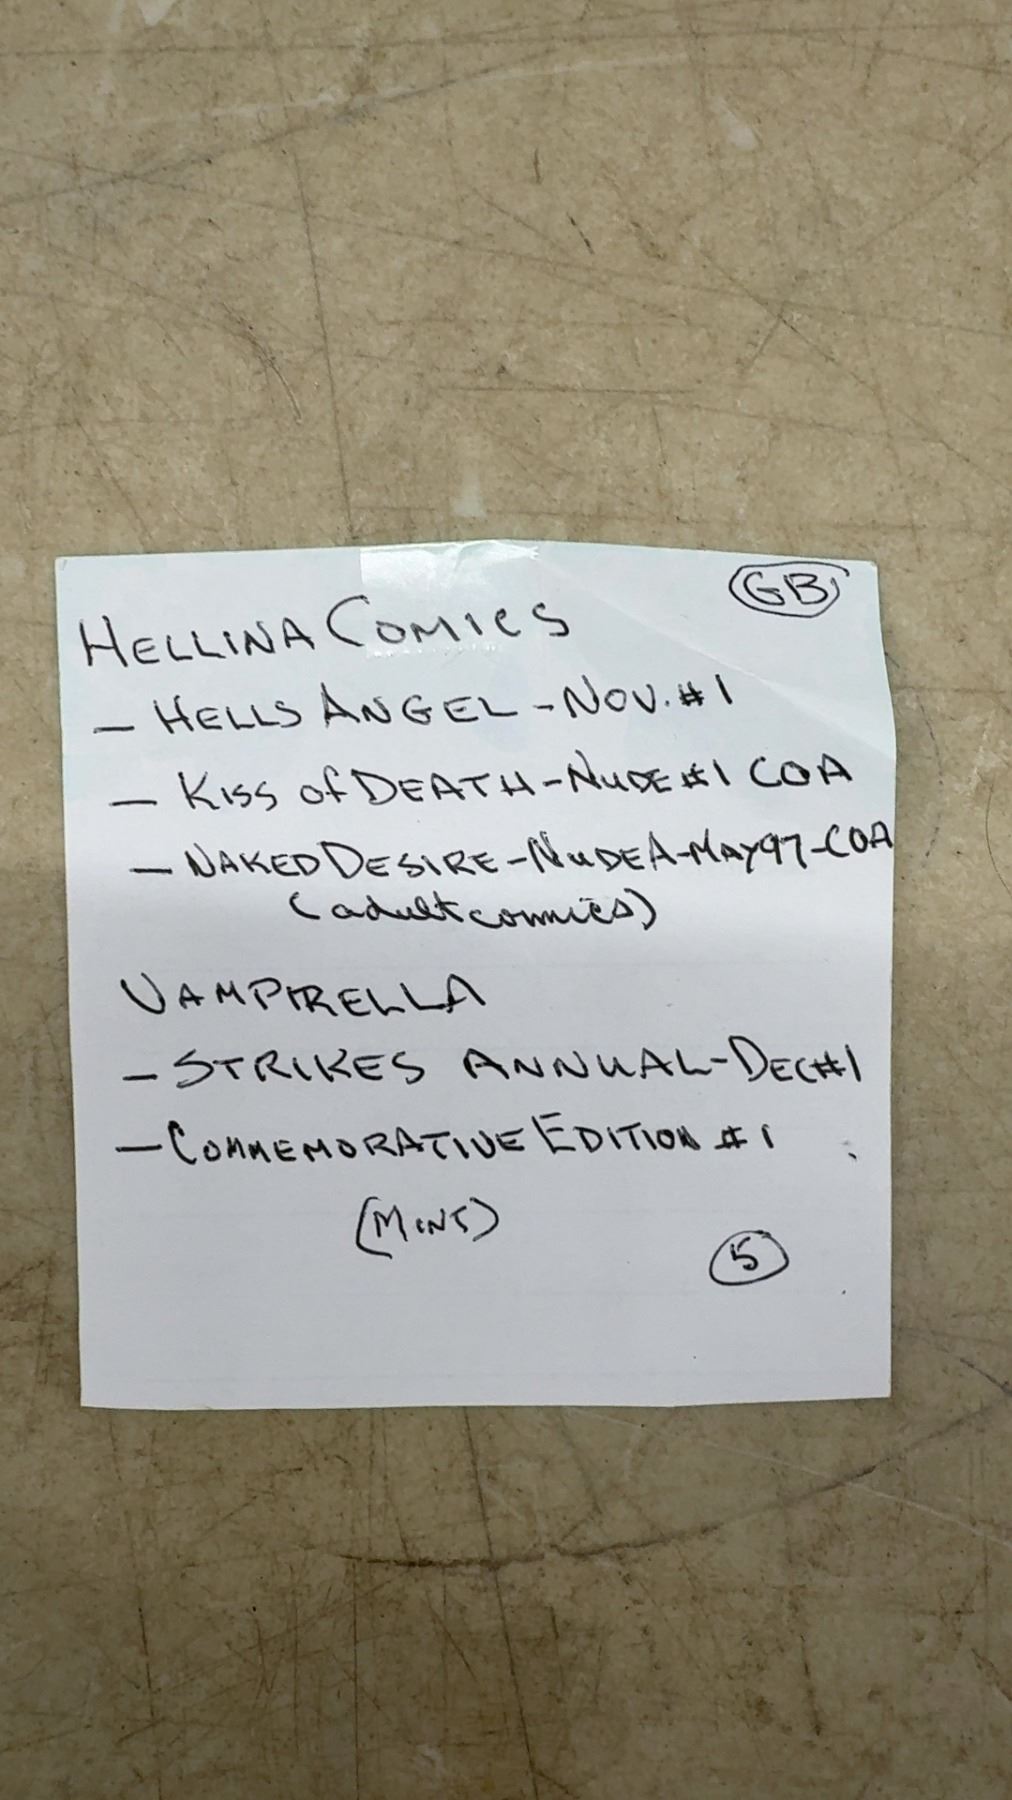 GB
HELLINA COMICS
- HELLS ANGEL - NOV. #1
- KISS of DEATH - NUDE #1 COA
- NAKED DESIRE - NUDE A - MAY 97 - COA
(adult comics)
VAMPIRELLA
- STRIKES ANNUAL - DEC #1
- COMMEMORATIVE EDITION #1
(MINT)
5